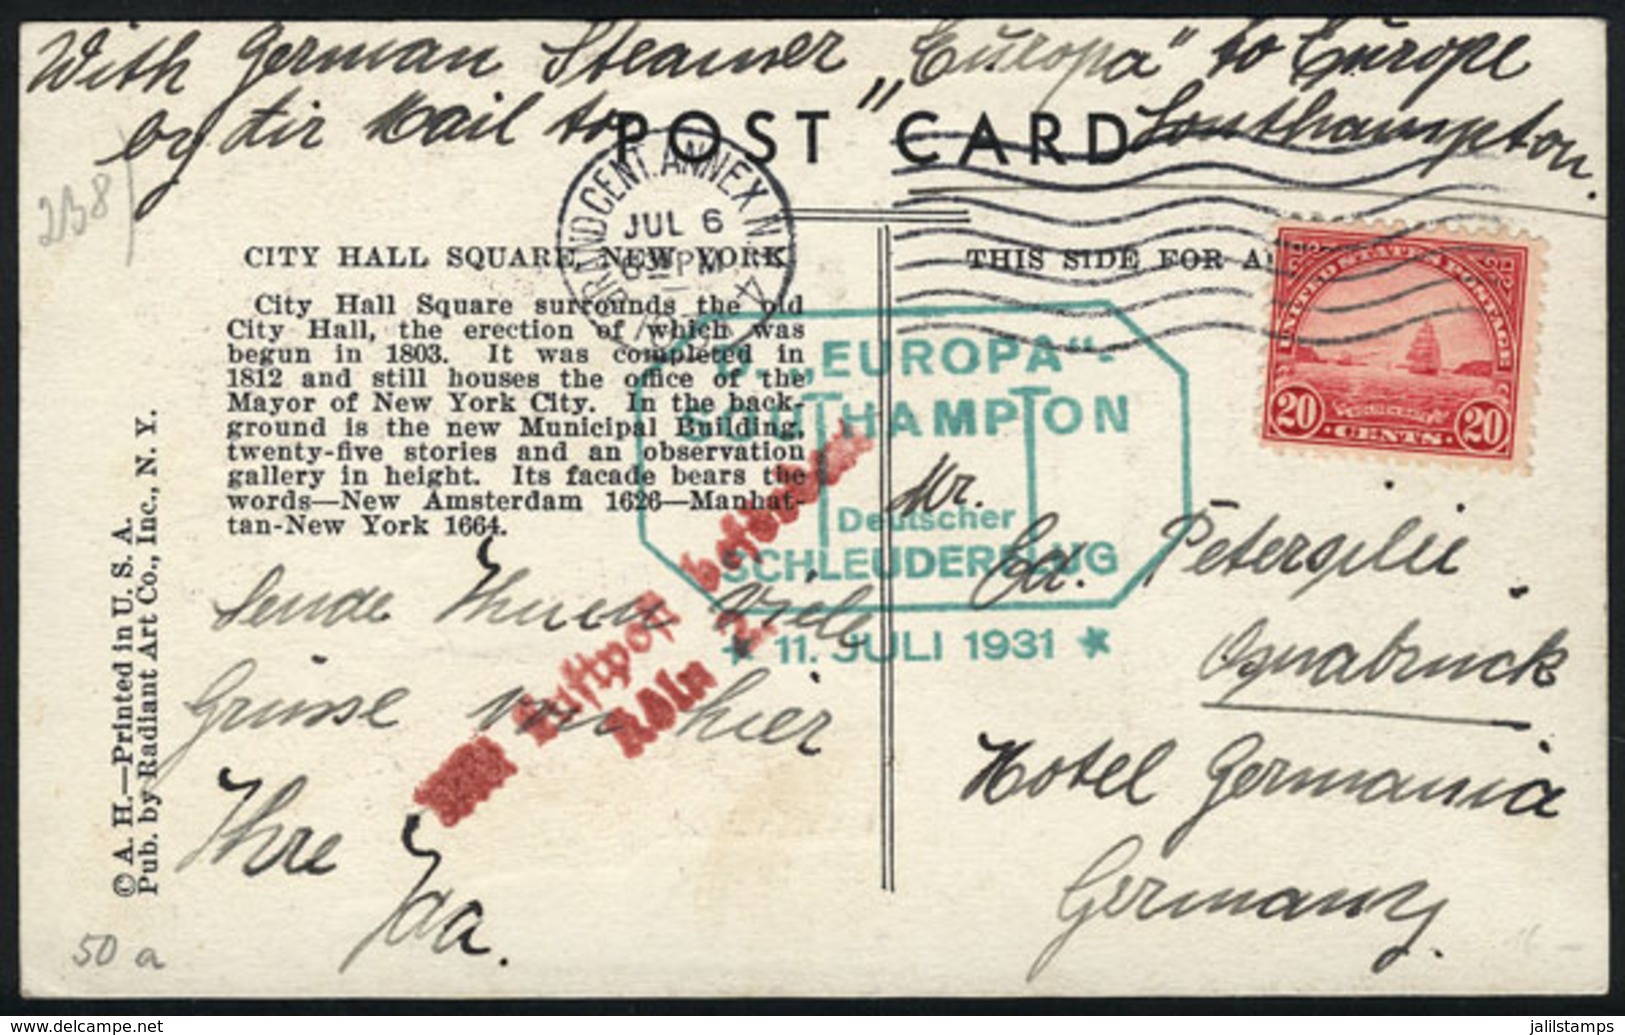 With German Steamer „Europa“ to Europe
by Air Mail to Southampton.
POST CARD
238
GRAND CENT. ANNEX N.Y.
JUL 6
PM
4
CITY HALL SQUARE, NEW YORK
THIS SIDE FOR A
City Hall Square surrounds the old
City Hall, the erection of which was
begun in 1803. It was completed in
1812 and still houses the office of the
Mayor of New York City. In the back-
ground is the new Municipal Building,
twenty-five stories and an observation
gallery in height. Its facade bears the
words—New Amsterdam 1626—Manhat-
tan-New York 1664.
UNITED STATES POSTAGE
20 CENTS 20
D. „EUROPA“-
SOUTHAMPTON
Deutscher
SCHLEUDERFLUG
* 11. JULI 1931 *
Mit Luftpost befördert
Köln 2.
Mr.
Ed. Petersilie
Osnabruck
Hotel Germania
Germany.
Sende Ihnen Viele
Grüsse von hier
Ihre
© A. H.—Printed in U. S. A.
Pub. by Radiant Art Co., Inc., N. Y.
50 a
www.delcampe.net
jalilstamps